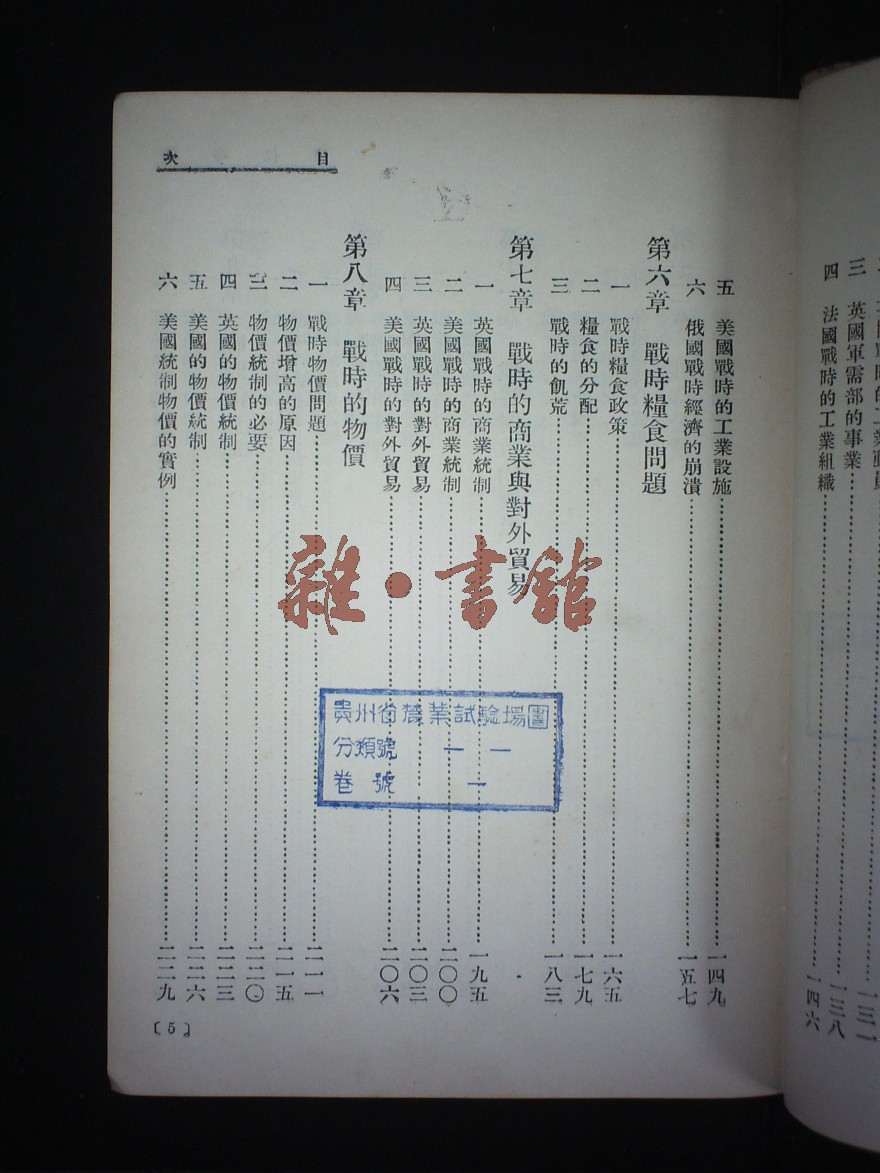 三 英國軍需部的事業……一三八
四 法國戰時的工業組織……一四六
目次
五 美國戰時的工業設施……一四九
六 俄國戰時經濟的崩潰……一五七
第六章 戰時糧食問題
一 戰時糧食政策……一六五
二 糧食的分配……一七九
三 戰時的飢荒……一八三
第七章 戰時的商業與對外貿易
一 英國戰時的商業統制……一九五
二 美國戰時的商業統制……二〇〇
三 英國戰時的對外貿易……二〇三
四 美國戰時的對外貿易……二〇六
第八章 戰時的物價
一 戰時物價問題……二一一
二 物價增高的原因……二一五
三 物價統制的必要……二二〇
四 英國的物價統制……二二三
五 美國的物價統制……二二六
六 美國統制物價的實例……二二九
〔5〕
雜·書館
貴州省農業試驗場圖
分類號 一 一
卷號 一